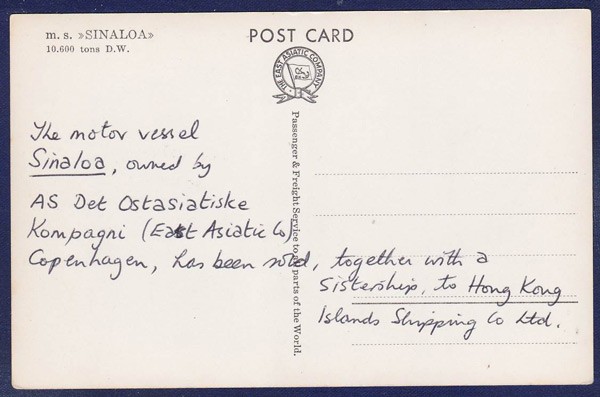 m. s. »SINALOA»
10.600 tons D.W.
POST CARD
THE EAST ASIATIC COMPANY
Passenger & Freight Service to all parts of the World.
The motor vessel
Sinaloa, owned by
AS Det Ostasiatiske
Kompagni (East Asiatic Co)
Copenhagen, has been sold, together with a
sistership, to Hong Kong
Islands Shipping Co Ltd.